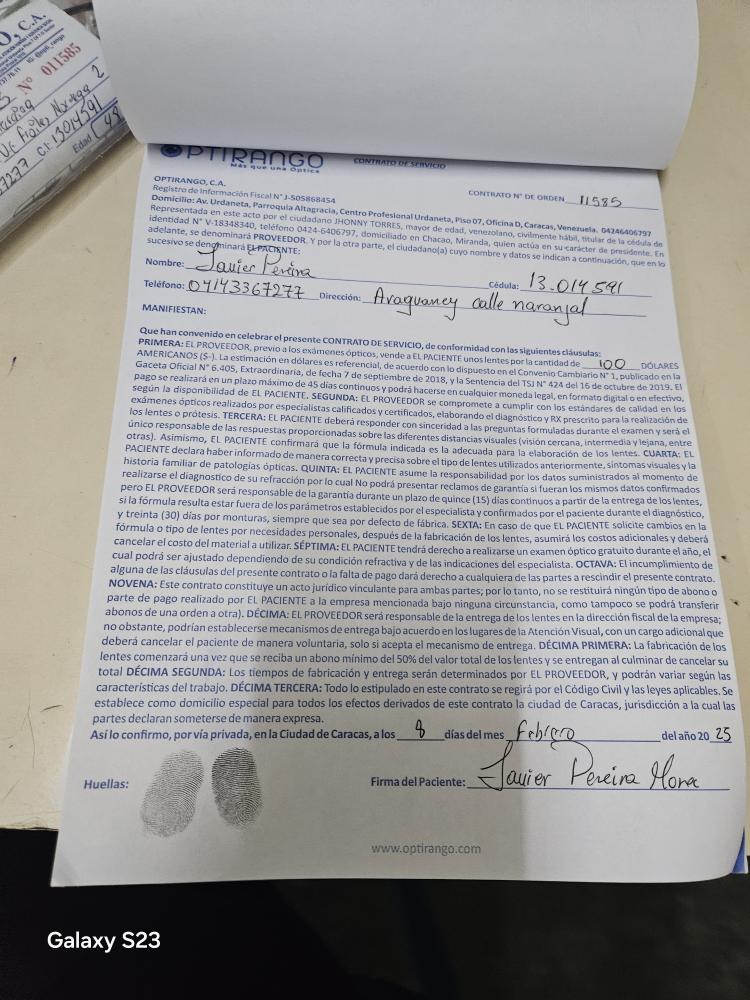 O, C.A.
Nº 011585
C.I: 13014591
Edad 48
OPTIRANGO
Más que una Óptica
CONTRATO DE SERVICIO
OPTIRANGO, C.A.
Registro de Información Fiscal N° J-505868454
CONTRATO N° DE ORDEN 11585
Domicilio: Av. Urdaneta, Parroquia Altagracia, Centro Profesional Urdaneta, Piso 07, Oficina D, Caracas, Venezuela. 04246406797
Representada en este acto por el ciudadano JHONNY TORRES, mayor de edad, venezolano, civilmente hábil, titular de la cédula de
identidad N° V-18348340, teléfono 0424-6406797, domiciliado en Chacao, Miranda, quien actúa en su carácter de presidente. En
adelante, se denominará PROVEEDOR. Y por la otra parte, el ciudadano(a) cuyo nombre y datos se indican a continuación, que en lo
sucesivo se denominará EL PACIENTE:
Nombre: Javier Pereira Cédula: 13.014591
Teléfono: 04143367277 Dirección: Araguaney calle naranjal
MANIFIESTAN:
Que han convenido en celebrar el presente CONTRATO DE SERVICIO, de conformidad con las siguientes cláusulas:
PRIMERA: EL PROVEEDOR, previo a los exámenes ópticos, vende a EL PACIENTE unos lentes por la cantidad de 100 DÓLARES
AMERICANOS ($-). La estimación en dólares es referencial, de acuerdo con lo dispuesto en el Convenio Cambiario N° 1, publicado en la
Gaceta Oficial N° 6.405, Extraordinaria, de fecha 7 de septiembre de 2018, y la Sentencia del TSJ N° 424 del 16 de octubre de 2019. El
pago se realizará en un plazo máximo de 45 días continuos y podrá hacerse en cualquier moneda legal, en formato digital o en efectivo,
según la disponibilidad de EL PACIENTE. SEGUNDA: EL PROVEEDOR se compromete a cumplir con los estándares de calidad en los
exámenes ópticos realizados por especialistas calificados y certificados, elaborando el diagnóstico y RX prescrito para la realización de
los lentes o prótesis. TERCERA: EL PACIENTE deberá responder con sinceridad a las preguntas formuladas durante el examen y será el
único responsable de las respuestas proporcionadas sobre las diferentes distancias visuales (visión cercana, intermedia y lejana, entre
otras). Asimismo, EL PACIENTE confirmará que la fórmula indicada es la adecuada para la elaboración de los lentes. CUARTA: EL
PACIENTE declara haber informado de manera correcta y precisa sobre el tipo de lentes utilizados anteriormente, síntomas visuales y la
historia familiar de patologías ópticas. QUINTA: EL PACIENTE asume la responsabilidad por los datos suministrados al momento de
realizarse el diagnostico de su refracción por lo cual No podrá presentar reclamos de garantía si fueran los mismos datos confirmados
pero EL PROVEEDOR será responsable de la garantía durante un plazo de quince (15) días continuos a partir de la entrega de los lentes,
si la fórmula resulta estar fuera de los parámetros establecidos por el especialista y confirmados por el paciente durante el diagnóstico,
y treinta (30) días por monturas, siempre que sea por defecto de fábrica. SEXTA: En caso de que EL PACIENTE solicite cambios en la
fórmula o tipo de lentes por necesidades personales, después de la fabricación de los lentes, asumirá los costos adicionales y deberá
cancelar el costo del material a utilizar. SÉPTIMA: EL PACIENTE tendrá derecho a realizarse un examen óptico gratuito durante el año, el
cual podrá ser ajustado dependiendo de su condición refractiva y de las indicaciones del especialista. OCTAVA: El incumplimiento de
alguna de las cláusulas del presente contrato o la falta de pago dará derecho a cualquiera de las partes a rescindir el presente contrato.
NOVENA: Este contrato constituye un acto jurídico vinculante para ambas partes; por lo tanto, no se restituirá ningún tipo de abono o
parte de pago realizado por EL PACIENTE a la empresa mencionada bajo ninguna circunstancia, como tampoco se podrá transferir
abonos de una orden a otra). DÉCIMA: EL PROVEEDOR será responsable de la entrega de los lentes en la dirección fiscal de la empresa;
no obstante, podrían establecerse mecanismos de entrega bajo acuerdo en los lugares de la Atención Visual, con un cargo adicional que
deberá cancelar el paciente de manera voluntaria, solo si acepta el mecanismo de entrega. DÉCIMA PRIMERA: La fabricación de los
lentes comenzará una vez que se reciba un abono mínimo del 50% del valor total de los lentes y se entregan al culminar de cancelar su
total DÉCIMA SEGUNDA: Los tiempos de fabricación y entrega serán determinados por EL PROVEEDOR, y podrán variar según las
características del trabajo. DÉCIMA TERCERA: Todo lo estipulado en este contrato se regirá por el Código Civil y las leyes aplicables. Se
establece como domicilio especial para todos los efectos derivados de este contrato la ciudad de Caracas, jurisdicción a la cual las
partes declaran someterse de manera expresa.
Así lo confirmo, por vía privada, en la Ciudad de Caracas, a los 8 días del mes Febrero del año 20 25
Huellas:
Firma del Paciente: Javier Pereira Mora
www.optirango.com
Galaxy S23